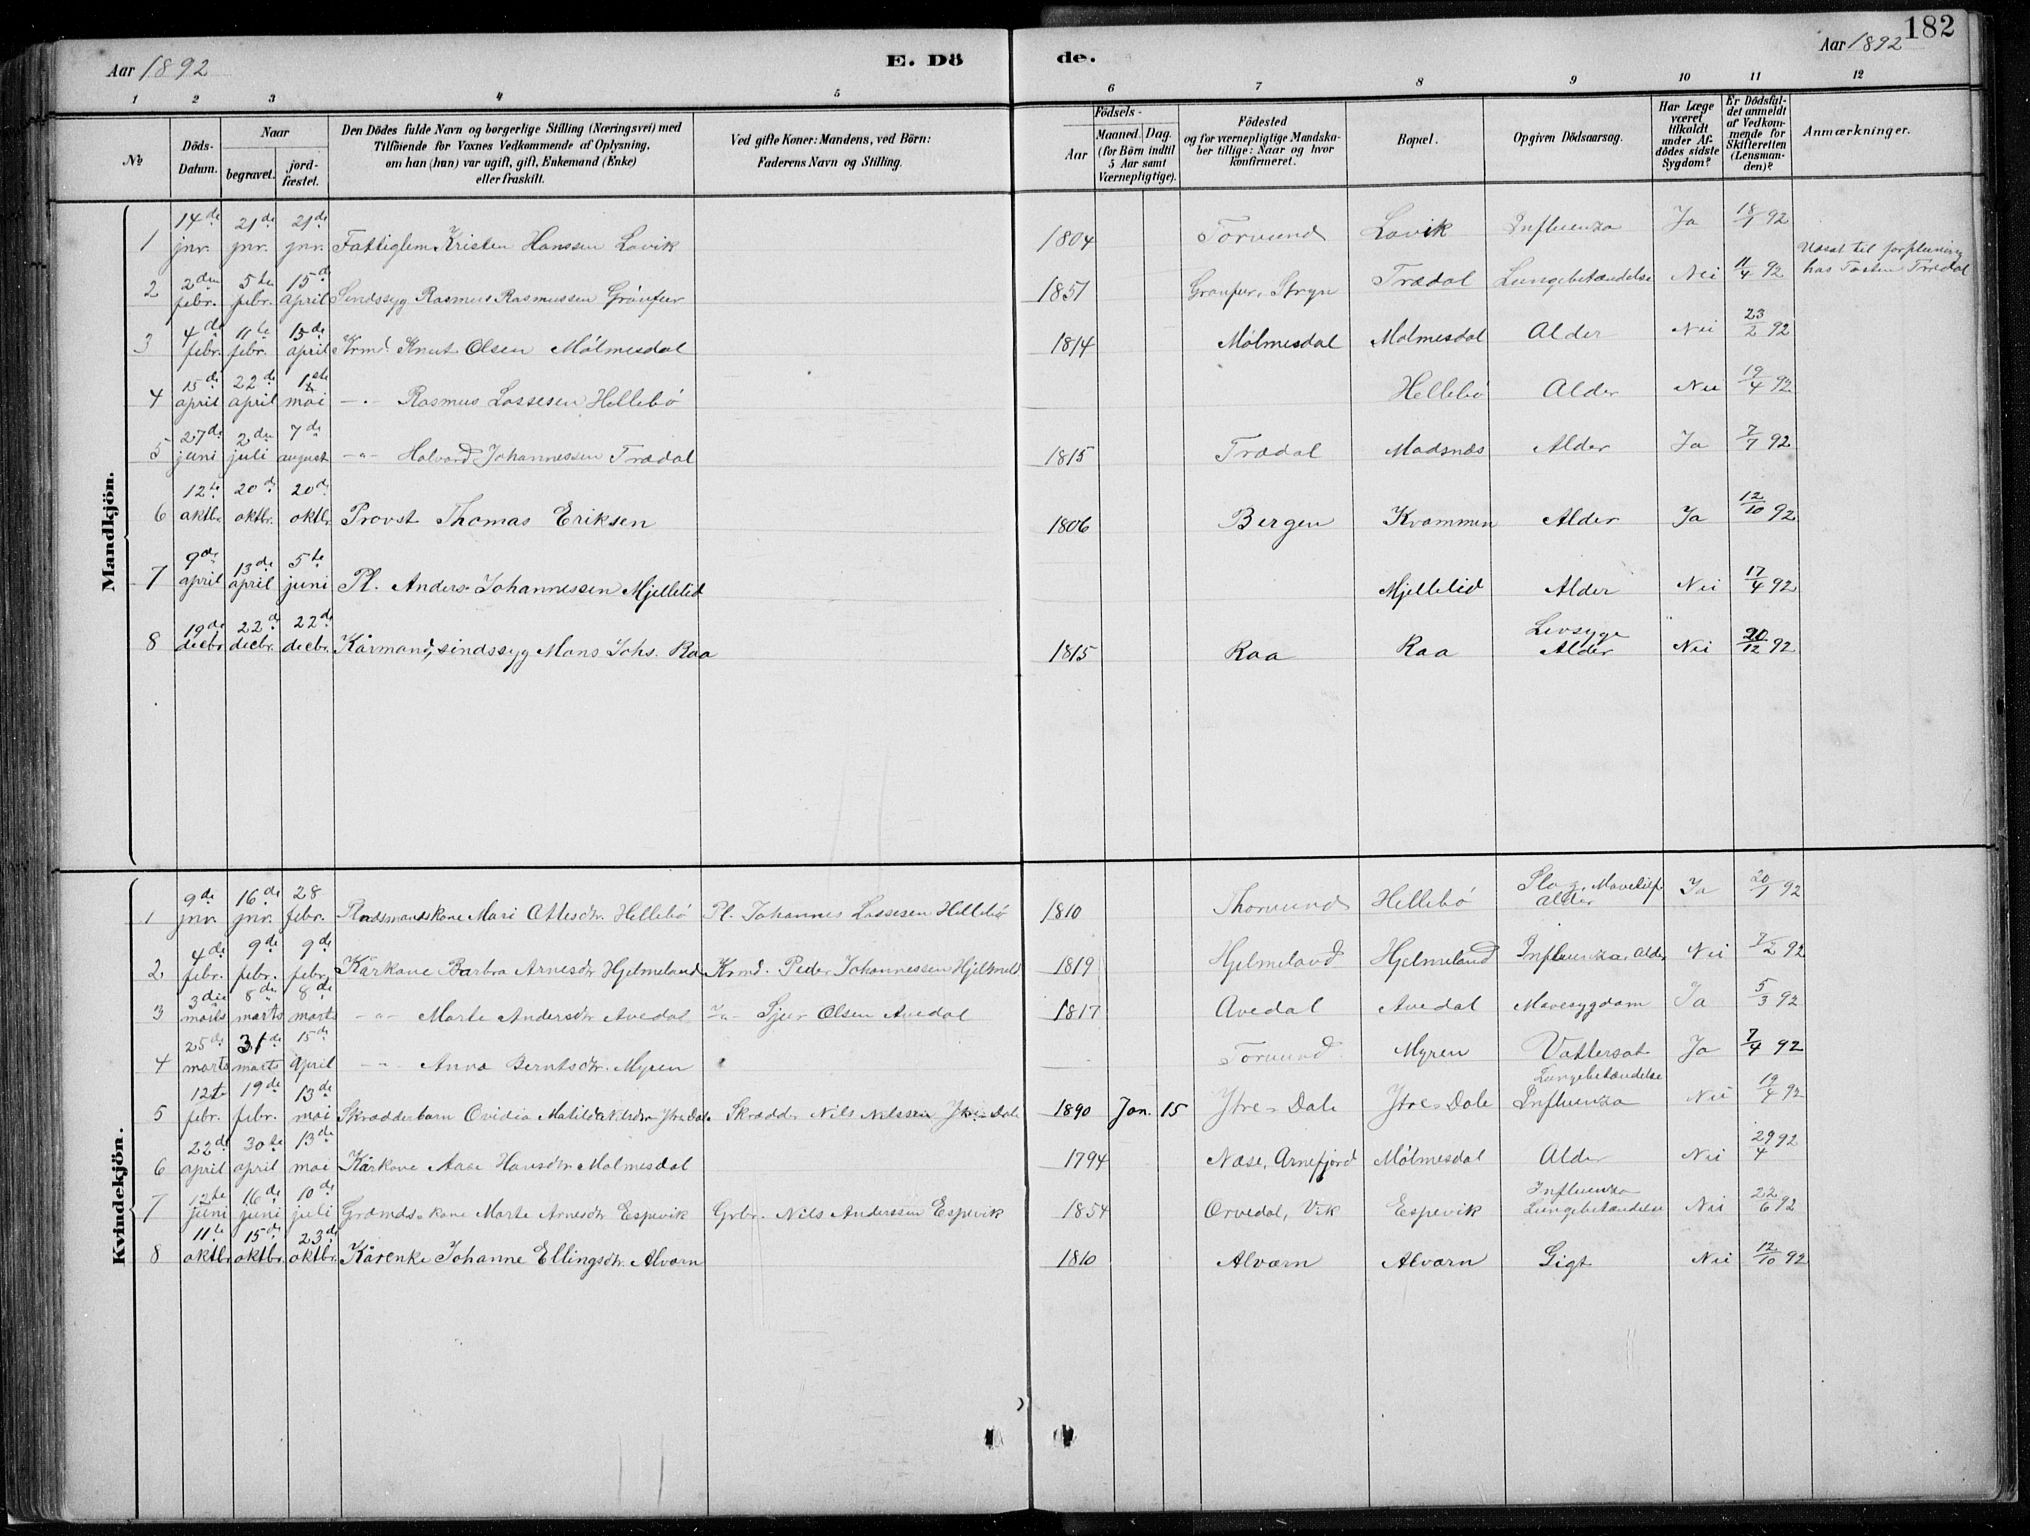 182
Aar 1892 E. Dö de. Aar 1892
1 2 3 4 5 6 7 8 9 10 11 12
№ Döds-Datum. Naar begravet. jordfæstet. Den Dödes fulde Navn og borgerlige Stilling (Næringsvei) med Tilföiende for Voxnes Vedkommende af Oplysning, om han (hun) var ugift, gift, Enkemand (Enke) eller fraskilt. Ved gifte Koner: Mandens, ved Börn: Faderens Navn og Stilling. Födsels- Aar Maaned. Dag. (for Börn indtil 5 Aar samt Værnepligtige). Födested og for værnepligtige Mandskaber tillige: Naar og hvor konfirmeret. Bopæl. Opgiven Dödsaarsag. Har Læge været tilkaldt under Afdödes sidste Sygdom? Er Dödsfaldet anmeldt af Vedkommende for Skifteretten (Lensmanden)? Anmærkninger.
Mandkjön.
1 14de jnr. 21de jnr. 21de jnr. Fattiglem Kristen Hanssen Lavik 1804 Torvund Lavik Influenza Ja 18/1 92
2 2den febr. 5te febr. 15de april Sindssyg Rasmus Rasmussen Grönfur 1851 Gronfur, Stryn Trædal Lungebetændelse Nei 11/4 92 Udsat til forpleining hos Tosten Trædal
3 4de febr. 11te febr. 15de april Krmd. Knut Olsen Mölmesdal 1814 Mölmesdal Molmesdal Alder Nei 23/2 92
4 15de april 22de april 1ste mai -"- Rasmus Lassesen Hellebö Hellebö Alder Nei 19/4 92
5 27de juni 2den juli 7de august -"- Halvard Johannessen Trædal 1815 Trædal Madsnæs Alder Ja 7/7 92
6 12te oktbr. 20de oktbr. 20de oktbr. Provst Thomas Eriksen 1806 Bergen Kvammen Alder Ja 12/10 92
7 9de april 13de april 5te juni Pl. Anders Johannessen Mjellelid Mjellelid Alder Nei 17/4 92
8 19de decbr. 22de decbr. 22de decbr. Kårmand, sindssyg Mons Johs. Raa 1815 Raa Raa Levsyge Alder Nei 20/12 92
Kvindekjön.
1 9de jnr. 16de jnr. 28 febr. Pladsmandskone Mari Ottesdtr. Hellebö Pl. Johannes Lassesen Hellebö 1810 Thorvund Hellebö Slag, Alder Ja 20/1 92
2 4de febr. 9de febr. 9de febr. Kårkone Barbra Arnesdtr Hjelmeland Krmd. Peder Johannessen Hjelmeld 1819 Hjelmeland Hjelmeland Influenza, Alder Nei 7/2 92
3 3die marts 8de marts 8de marts -"- Marte Andersdtr Avedal -"- Sjur Olsen Avedal 1817 Avedal Avedal Mavesygdom Ja 5/3 92
4 25de marts 31de marts 15de April -"- Anna Berntsdtr. Myren Torvund Myren Vattersot Ja 7/4 92
5 12te febr. 19de febr. 13de mai Skrædderbarn Ovidia Matilde Nilsdtr Ytre Dale Skrædd. Nils Nilssen Ytre-Dale 1890 Jan. 15 Ytre-Dale Ytre-Dale Lungebetændelse Influenza Nei 19/4 92
6 22de april 30te april 13de mai Kårkone Aase Hansdtr Molmesdal 1794 Næse, Arnefjord Mölmesdal Alder Nei 29/4 92
7 12te juni 16de juni 10de juli Grdmds.kone Marte Arnesdtr Espevik Grbr. Nils Anderssen Espevik 1854 Orvedal, Vik Espevik Influenza Lungebetændelse Nei 22/6 92
8 11te oktbr. 15de oktbr. 23de oktbr. Kårenke Johanne Ellingsdtr. Alværn 1810 Alværn Alværn Gigt Nei 12/10 92